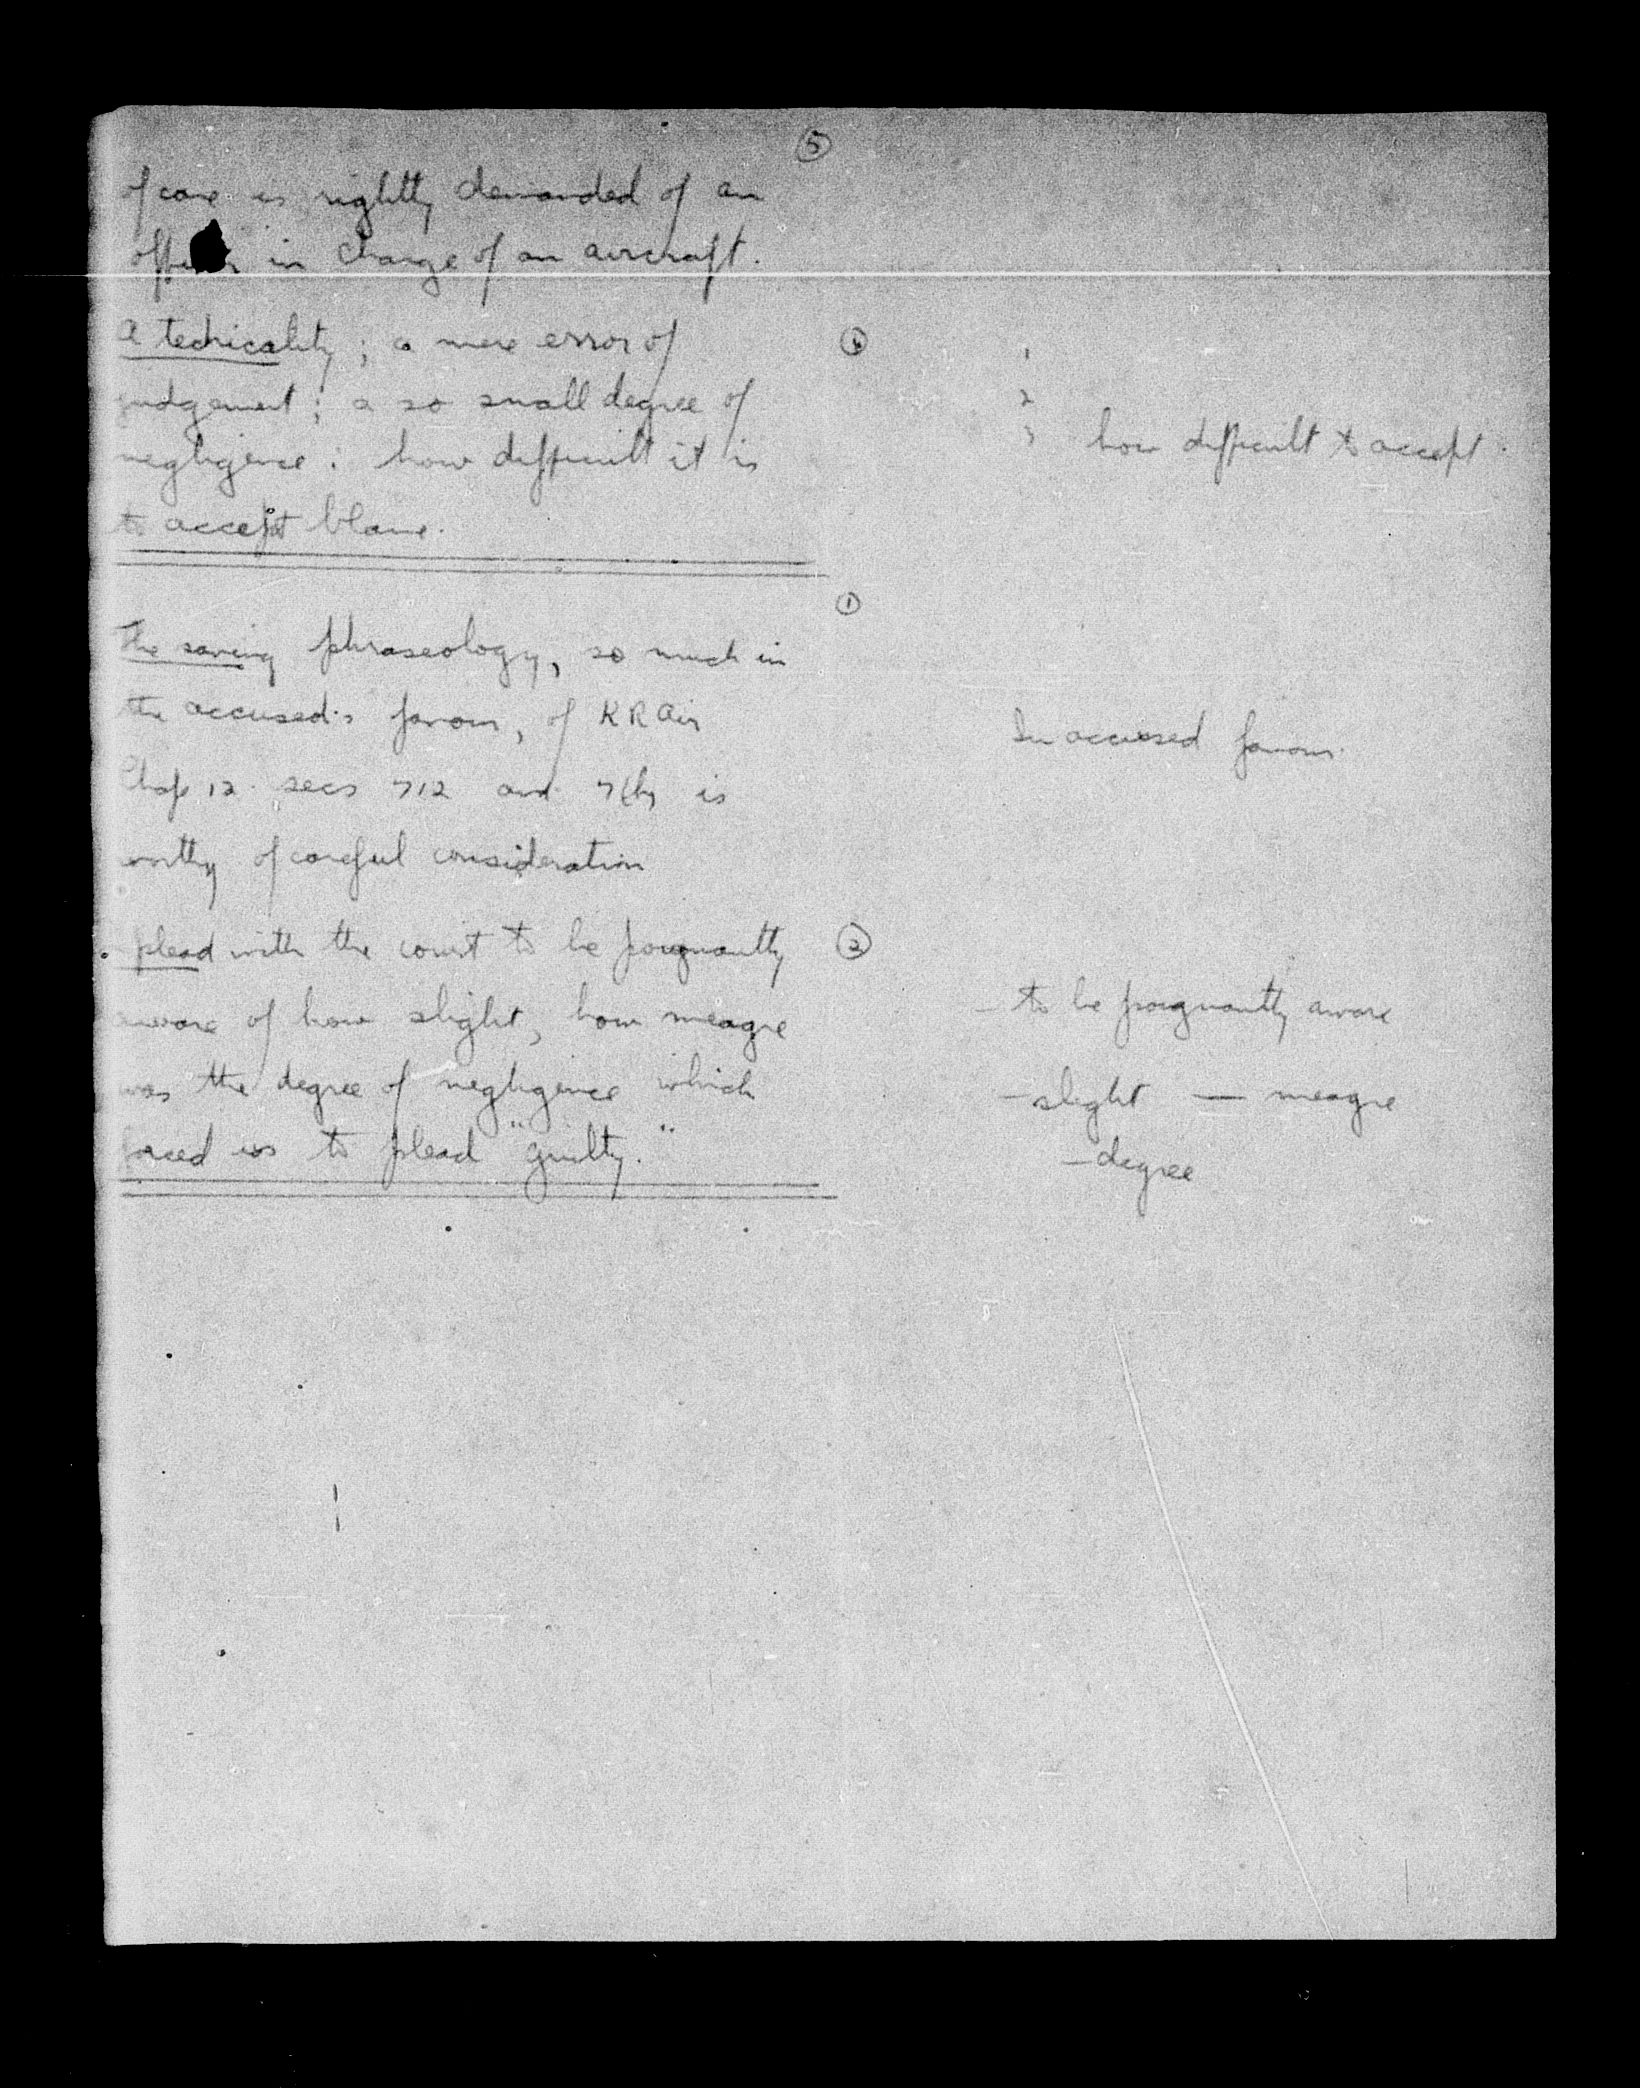 5
of care is rightly demanded of an
officer in charge of an aircraft.
A techicality; a mere error of
judgement; a so small degree of
negligence: how difficult it is
to accept blame.
1
2
3 how difficult to accept.
1
The saving phraseology, so much in
the accused's favour, of KR Air
Chap 12 secs 712 and is
worthy of careful consideration
In accused favour.
plead with the court to be poignantly
aware of how slight, how meagre
was the degree of negligence which
forced us to plead "guilty."
2
– to be poignantly aware
– slight — meagre
– degree